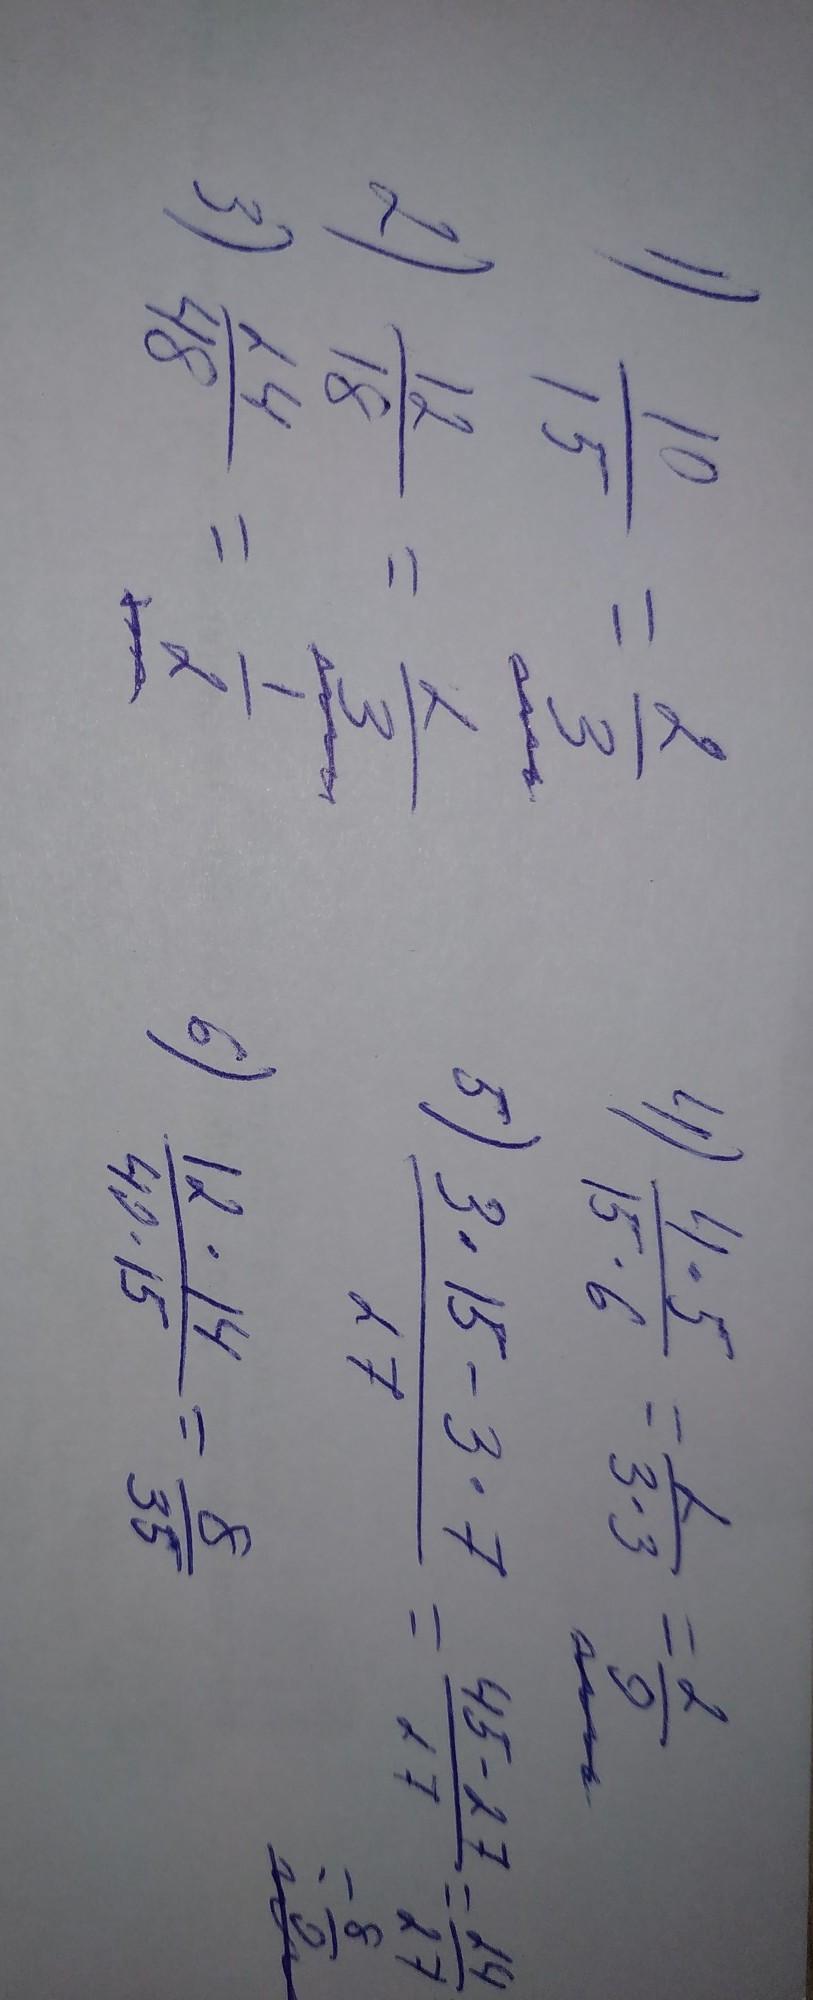 1) 10/15 = 2/3
2) 12/18 = 2/3
3) 24/48 = 1/2
4) 4·5/15·6 = 2/3·3 = 2/9
5) 3·15-3·7/27 = 45-27/27 = 24/27 = 8/9
6) 12·14/49·15 = 8/35